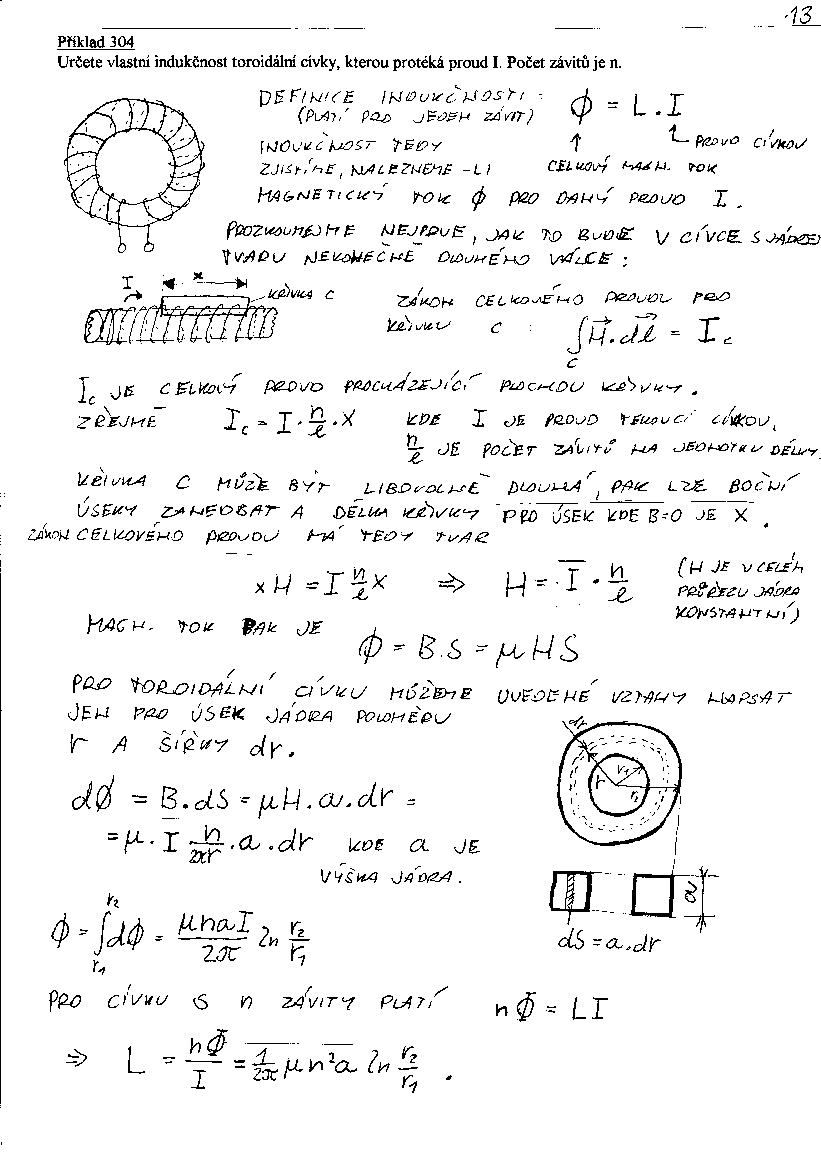 13
Příklad 304
Určete vlastní indukčnost toroidální cívky, kterou protéká proud I. Počet závitů je n.
DEFINICE INDUKČNOSTI : Φ = L.I
(PLATÍ PRO JEDEN ZÁVIT)
INDUKČNOST TEDY ↑ PROUD CÍVKOU
ZJISTÍME, NALEZNEME-LI CELKOVÝ MAGN. TOK
MAGNETICKÝ TOK Φ PRO DANÝ PROUD I.
PROZKOUMEJME NEJPRVE, JAK TO BUDE V CÍVCE S JÁDREM
TVARU NEKONEČNĚ DLOUHÉHO VÁLCE :
I x KŘIVKA C
ZÁKON CELKOVÉHO PROUDU PRO
KŘIVKU C : ∫_C H⃗.dl⃗ = I_c
I_c JE CELKOVÝ PROUD PROCHÁZEJÍCÍ PLOCHOU KŘIVKY.
ZŘEJMĚ I_c = I · n/l · X KDE I JE PROUD TEKOUCÍ CÍVKOU,
n/l JE POČET ZÁVITŮ NA JEDNOTKU DÉLKY
KŘIVKA C MŮŽE BÝT LIBOVOLNĚ DLOUHÁ, PAK LZE BOČNÍ
ÚSEKY ZANEDBAT A DÉLKA KŘIVKY PRO ÚSEK KDE B=0 JE X.
ZÁKON CELKOVÉHO PROUDU MÁ TEDY TVAR
xH = I n/l x ⇒ H = I · n/l (H JE V CELÉM
PRŮŘEZU JÁDRA
KONSTANTNÍ)
MAGN. TOK PAK JE
Φ = B.S = μHS
PRO TOROIDÁLNÍ CÍVKU MŮŽEME UVEDENÉ VZTAHY NAPSAT
JEN PRO ÚSEK JÁDRA POLOMĚRU
r A ŠÍŘKY dr.
dr
r r₁ r₂
dΦ = B.dS = μH.a.dr =
= μ.I n/2πr .a.dr KDE a JE
VÝŠKA JÁDRA.
a
dS = a.dr
Φ = ∫_{r₁}^{r₂} dΦ = μnaI/2π ln r₂/r₁
PRO CÍVKU S n ZÁVITY PLATÍ nΦ = LI
⇒ L = nΦ/I = 1/2π μn²a ln r₂/r₁ .